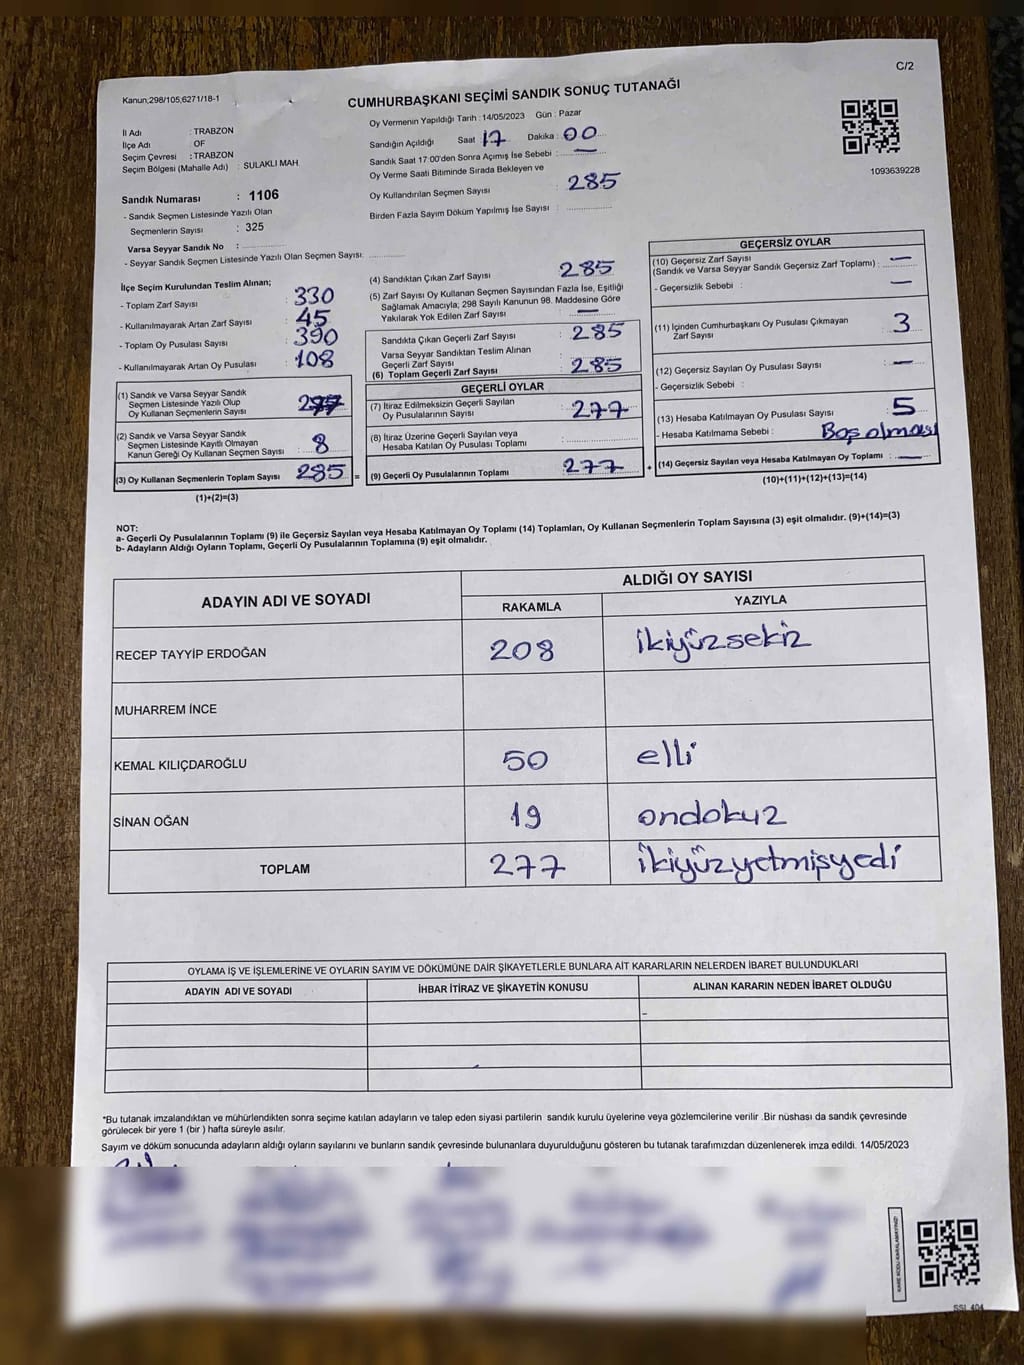 C/2
Kanun;298/105,6271/18-1
CUMHURBAŞKANI SEÇİMİ SANDIK SONUÇ TUTANAĞI
İl Adı : TRABZON
İlçe Adı : OF
Seçim Çevresi : TRABZON
Seçim Bölgesi (Mahalle Adı) : SULAKLI MAH
Sandık Numarası : 1106
- Sandık Seçmen Listesinde Yazılı Olan
Seçmenlerin Sayısı : 325
Varsa Seyyar Sandık No :
- Seyyar Sandık Seçmen Listesinde Yazılı Olan Seçmen Sayısı:
Oy Vermenin Yapıldığı Tarih : 14/05/2023 Gün : Pazar
Sandığın Açıldığı Saat 17 Dakika : 00
Sandık Saat 17:00'den Sonra Açımış İse Sebebi : —
Oy Verme Saati Bitiminde Sırada Bekleyen ve
Oy Kullandırılan Seçmen Sayısı : 285
Birden Fazla Sayım Döküm Yapılmış İse Sayısı :
1093639228
İlçe Seçim Kurulundan Teslim Alınan;
- Toplam Zarf Sayısı : 330
- Kullanılmayarak Artan Zarf Sayısı : 45
- Toplam Oy Pusulası Sayısı : 390
- Kullanılmayarak Artan Oy Pusulası : 108
(1) Sandık ve Varsa Seyyar Sandık
Seçmen Listesinde Yazılı Olup
Oy Kullanan Seçmenlerin Sayısı : 277
(2) Sandık ve Varsa Seyyar Sandık
Seçmen Listesinde Kayıtlı Olmayan
Kanun Gereği Oy Kullanan Seçmen Sayısı : 8
(3) Oy Kullanan Seçmenlerin Toplam Sayısı : 285 =
(1)+(2)=(3)
(4) Sandıktan Çıkan Zarf Sayısı : 285
(5) Zarf Sayısı Oy Kullanan Seçmen Sayısından Fazla İse, Eşitliği
Sağlamak Amacıyla; 298 Sayılı Kanunun 98. Maddesine Göre
Yakılarak Yok Edilen Zarf Sayısı : —
Sandıkta Çıkan Geçerli Zarf Sayısı : 285
Varsa Seyyar Sandıktan Teslim Alınan
Geçerli Zarf Sayısı :
(6) Toplam Geçerli Zarf Sayısı : 285
GEÇERLİ OYLAR
(7) İtiraz Edilmeksizin Geçerli Sayılan
Oy Pusulalarının Sayısı : 277
(8) İtiraz Üzerine Geçerli Sayılan veya
Hesaba Katılan Oy Pusulası Toplamı :
(9) Geçerli Oy Pusulalarının Toplamı : 277 +
GEÇERSİZ OYLAR
(10) Geçersiz Zarf Sayısı
(Sandık ve Varsa Seyyar Sandık Geçersiz Zarf Toplamı) : —
- Geçersizlik Sebebi : —
(11) İçinden Cumhurbaşkanı Oy Pusulası Çıkmayan
Zarf Sayısı : 3
(12) Geçersiz Sayılan Oy Pusulası Sayısı : —
- Geçersizlik Sebebi :
(13) Hesaba Katılmayan Oy Pusulası Sayısı : 5
- Hesaba Katılmama Sebebi : Boş olması
(14) Geçersiz Sayılan veya Hesaba Katılmayan Oy Toplamı : —
(10)+(11)+(12)+(13)=(14)
NOT:
a- Geçerli Oy Pusulalarının Toplamı (9) ile Geçersiz Sayılan veya Hesaba Katılmayan Oy Toplamı (14) Toplamları, Oy Kullanan Seçmenlerin Toplam Sayısına (3) eşit olmalıdır. (9)+(14)=(3)
b- Adayların Aldığı Oyların Toplamı, Geçerli Oy Pusulalarının Toplamına (9) eşit olmalıdır.
ADAYIN ADI VE SOYADI ALDIĞI OY SAYISI
RAKAMLA YAZIYLA
RECEP TAYYİP ERDOĞAN 208 ikiyüzsekiz
MUHARREM İNCE
KEMAL KILIÇDAROĞLU 50 elli
SİNAN OĞAN 19 ondokuz
TOPLAM 277 ikiyüzyetmişyedi
OYLAMA İŞ VE İŞLEMLERİNE VE OYLARIN SAYIM VE DÖKÜMÜNE DAİR ŞİKAYETLERLE BUNLARA AİT KARARLARIN NELERDEN İBARET BULUNDUKLARI
ADAYIN ADI VE SOYADI İHBAR İTİRAZ VE ŞİKAYETİN KONUSU ALINAN KARARIN NEDEN İBARET OLDUĞU
*Bu tutanak imzalandıktan ve mühürlendikten sonra seçime katılan adayların ve talep eden siyasi partilerin sandık kurulu üyelerine veya gözlemcilerine verilir .Bir nüshası da sandık çevresinde
görülecek bir yere 1 (bir ) hafta süreyle asılır.
Sayım ve döküm sonucunda adayların aldığı oyların sayılarını ve bunların sandık çevresinde bulunanlara duyurulduğunu gösteren bu tutanak tarafımızdan düzenlenerek imza edildi. 14/05/2023
KARE KODU KARALAMAYINIZ!